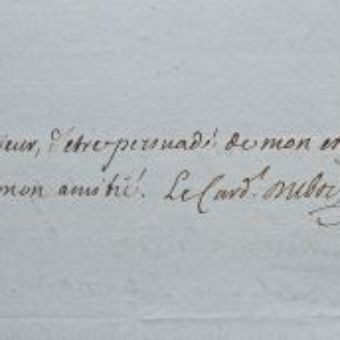 ieur, d'etre persuadé de mon es
mon amitié. Le Card.l Dubois